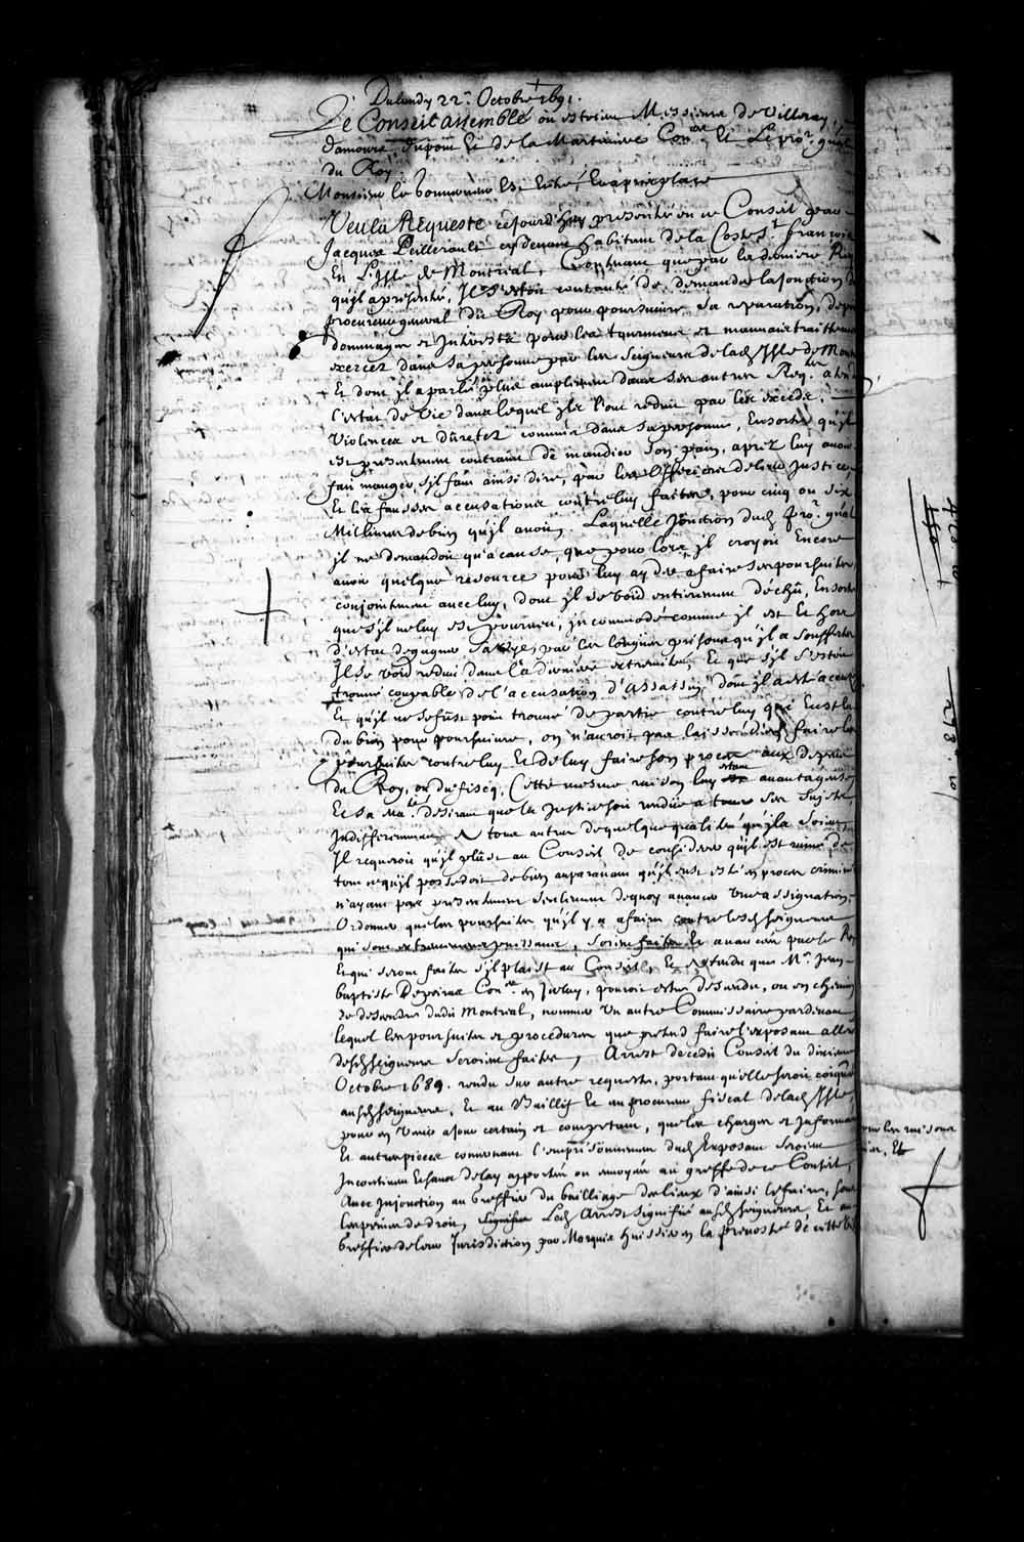 Du lundy 22e. Octobre 1691.
Le Conseil assemblé ou estoient Messieurs de Villeray,
damours dupont Et de la Martiniere Coners. Et Le pror. gnal
du Roy.
Monsieur le Gouverneur Est Entré, En a pris place
Veu la Requeste cejourd'huy presentée en ce Conseil par
Jacques Peillerault cy devant habitant de la Coste St. françois
En L'isle de Montreal, Contenant que par la derniere Req
qu'il a presenté, Il s'estoit contanté de demander la jonction d
procureur general du Roy pour poursuivre Sa reparation, depen
dommages et Interests pour les tourmens et mauvais traittemens
exercez dans Sa personne par les Seigneurs de lade. Isle de Mont
Et dont il a parlé plus amplement dans Ses autres Reqtes.
l'estat de vie dans lequel ils l'ont reduit par les excedz,
Violences et duretez commis dans Sa personne, Ensorte qu'il
est presentement contraint de mandier Son pain, apres luy avoir
fait manger, s'il faut ainsi dire, par les officiers de leur Justice,
Et les fausses accusations contre luy faites, pour cinq ou six
Mil livres de bien qu'il avoit. Laquelle Jonction dud. pror. gnal
il ne demandoit qu'a cause que pour lors il croyoit Encore
avoir quelque resource pour luy ayder a faire Ses poursuites
conjointement avec luy, dont il se void entierement décheu, Ensorte
que s'il ne luy est pourveu, incommodé comme il est Et hors
d'estat de gagner Sa vie, par les longues prisons qu'il a Souffertes
Il Se void reduit dans la derniere extremité, Et que s'il s'estoit
trouvé coupable de l'accusation d'assassin dont il a esté accusé
Et qu'il ne Se fust point trouvé de partie contre luy qui Eust eu
du bien pour poursuivre, on n'auroit pas laissé de faire les
poursuites contre luy Et de luy faire Son procez aux depens
du Roy, ou du fiscq, Cette mesme raison luy estant avantageuse
Et Sa Maté. desirant que la justice Soit rendue a tous Ses Sujets
Indifferemment Et tous autres de quelque qualité qu'ils Soient
Il requeroit qu'il plust au Conseil de considerer qu'il est ruiné de
tout ce qu'il possedoit de bien auparavant qu'il eust esté en procez criminel
n'ayant pas presentement Seulement de quoy avancer une assignation,
Ordonner que les poursuites qu'il y a a faire contre lesd. Seigneurs
qui Sont extremement puissans, Soient faites Et avancées par le Roy
Et qui Seront faites S'il plaist au Conseil, Et attendu que Mr. Jean
baptiste Depeiras Coner. en Iceluy, pourroit estre descendu, ou en chemin
de descendre dudit Montreal, nommer un autre Commissaire pardevant
lequel les poursuites et procedures que pretend faire l'exposant alle
desd. Seigneurs Seroient faites, Arrest de cedit Conseil du dixieme
Octobre 1689. rendu Sur autre requeste, portant qu'elle Seroit coiquée
ausd. Seigneurs, Et au Baillif Et au procureur fiscal de lade. Isle,
pour en venir a jour certain et competent, que les charges et Informa
Et autres pieces concernant l'emprisonnement dud. Exposant Seroient
Incontinent Et Sans delay apportées ou envoyées au greffe de ce Conseil,
Avec Injonction au Greffier du bailliage des lieux d'ainsi le faire, Sous
les peines de droit, Led. Arrest signifié ausd. Seigneurs, Et au
Greffier de leur Jurisdiction par Marquis huissier en la prevosté de cette